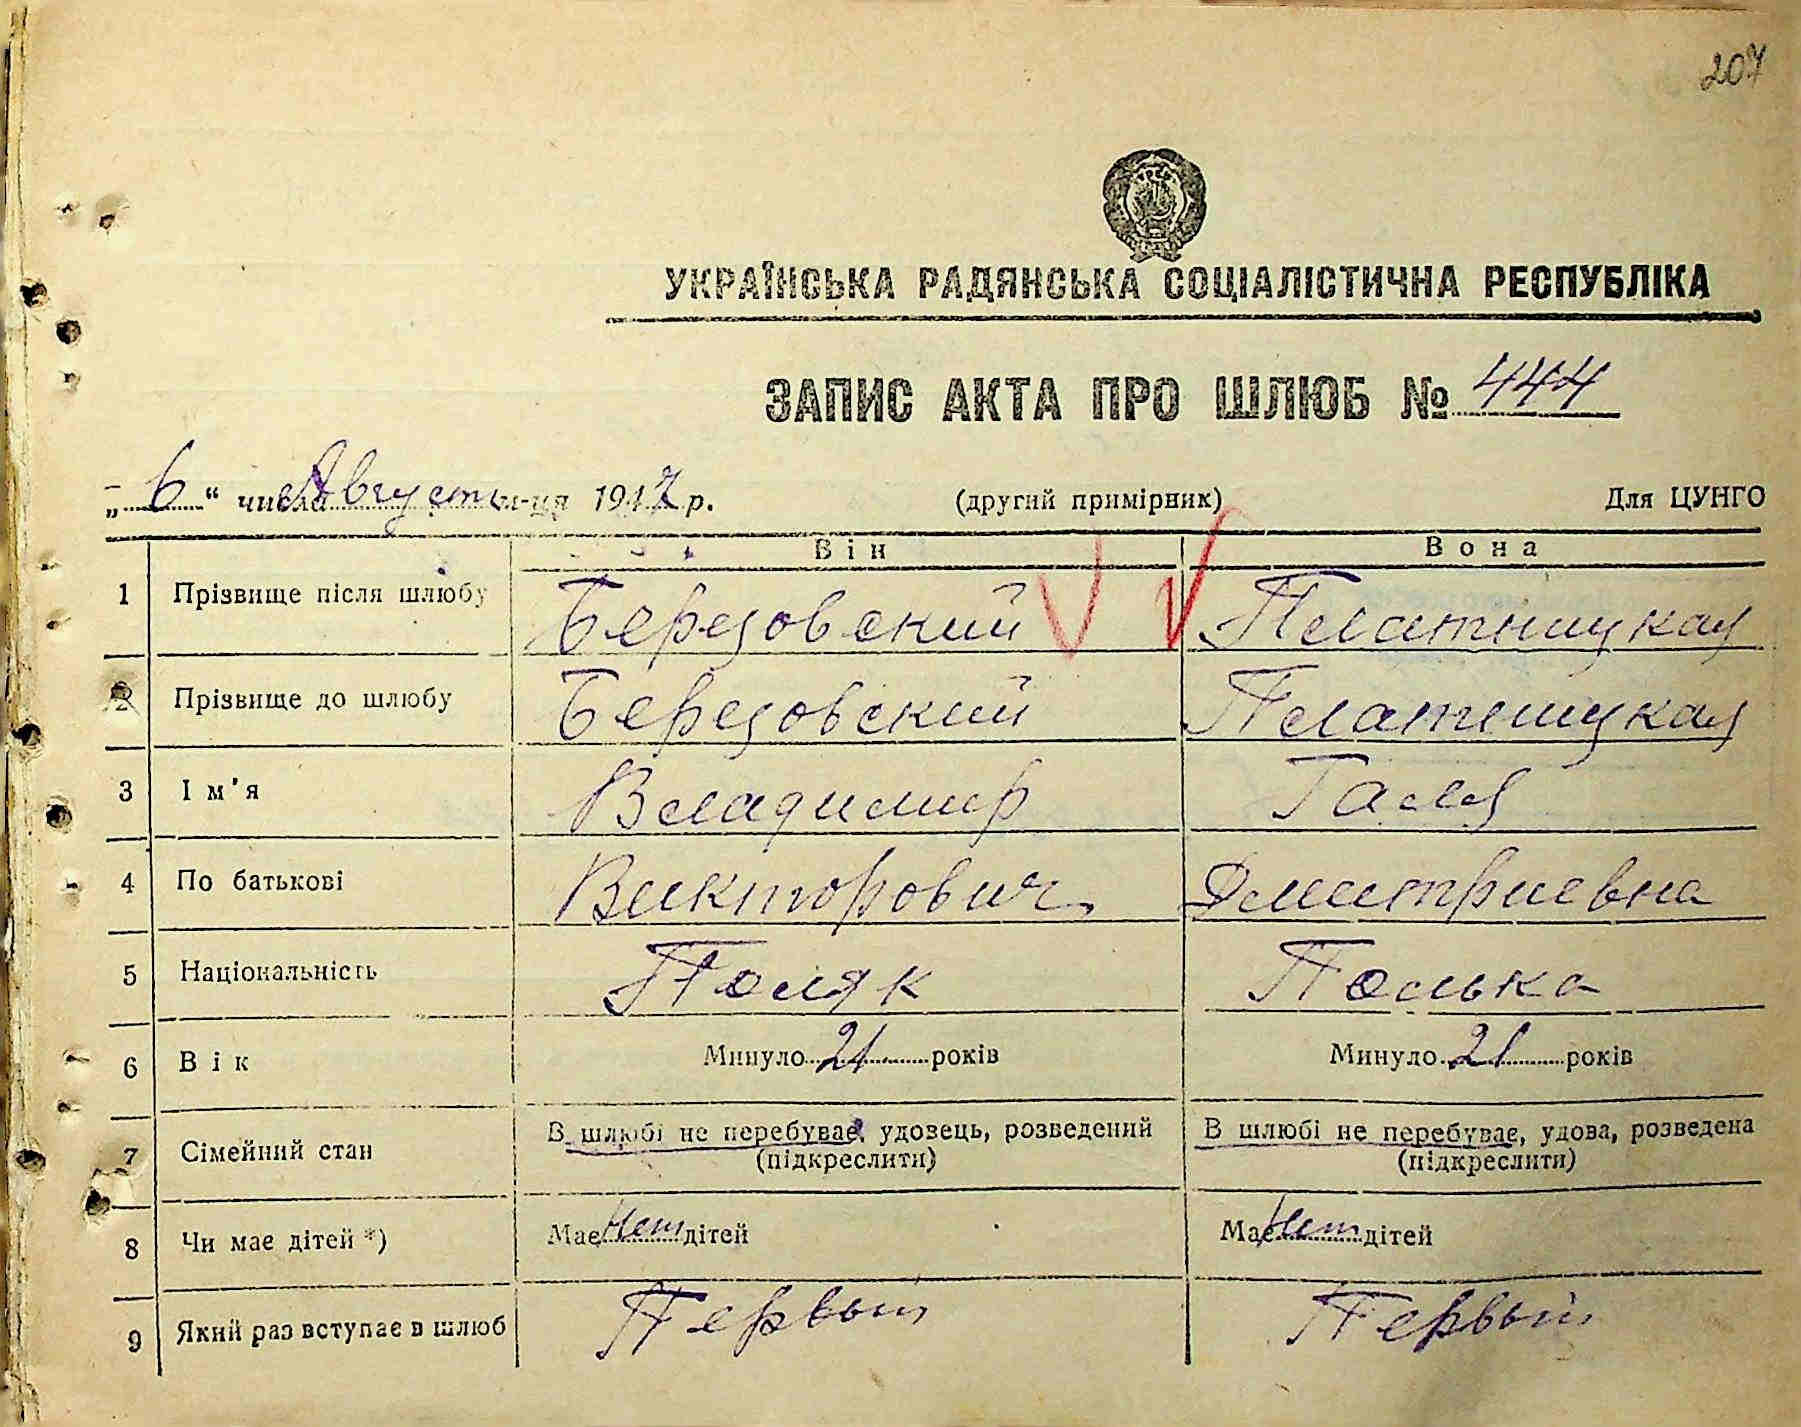 207
УКРАЇНСЬКА РАДЯНСЬКА СОЦІАЛІСТИЧНА РЕСПУБЛІКА
ЗАПИС АКТА ПРО ШЛЮБ № 444
„ 6 “ числа Августа м-ця 1947 р. (другий примірник) Для ЦУНГО
Він Вона
1 Прізвище після шлюбу Березовский Плятницкая
2 Прізвище до шлюбу Березовский Плятницкая
3 Ім'я Владимир Галя
4 По батькові Викторович Дмитриевна
5 Національність Поляк Полька
6 Вік Минуло 21 років Минуло 21 років
7 Сімейний стан В шлюбі не перебуває, удовець, розведений В шлюбі не перебуває, удова, розведена
(підкреслити) (підкреслити)
8 Чи має дітей *) Має Нет дітей Має Нет дітей
9 Який раз вступає в шлюб Первый Первый